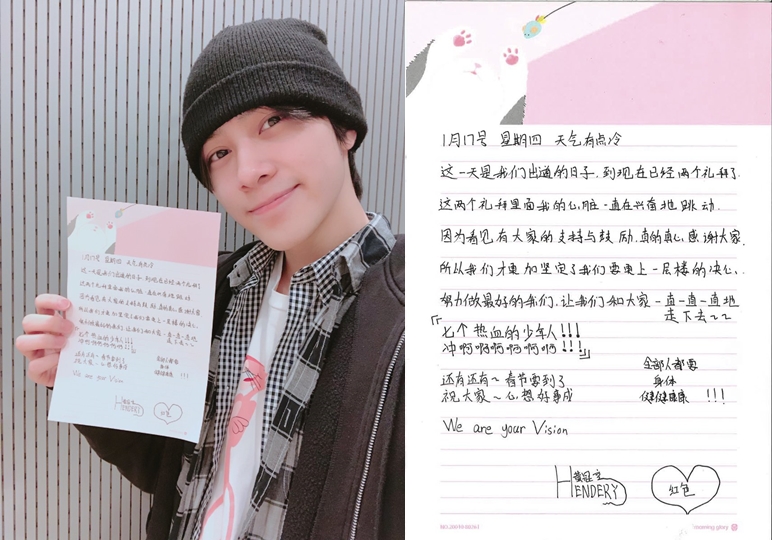 1月17号 星期四 天气有点冷
这一天是我们出道的日子.到现在已经两个礼拜了.
这两个礼拜里面我的心脏一直在兴奋地跳动.
因为看见有大家的支持与鼓励.真的真心感谢大家.
所以我们才更加坚定了我们要更上一层楼的决心.
努力做最好的我们.让我们和大家一直一直一直地
走下去~~
「七个热血的少年人!!!
冲啊啊啊啊啊啊!!!」
还有还有~春节要到了
祝大家~心想事成
全部人都要
身体
健健康康 !!!
We are your Vision
黄冠亨
HENDERY
红包
morning glory